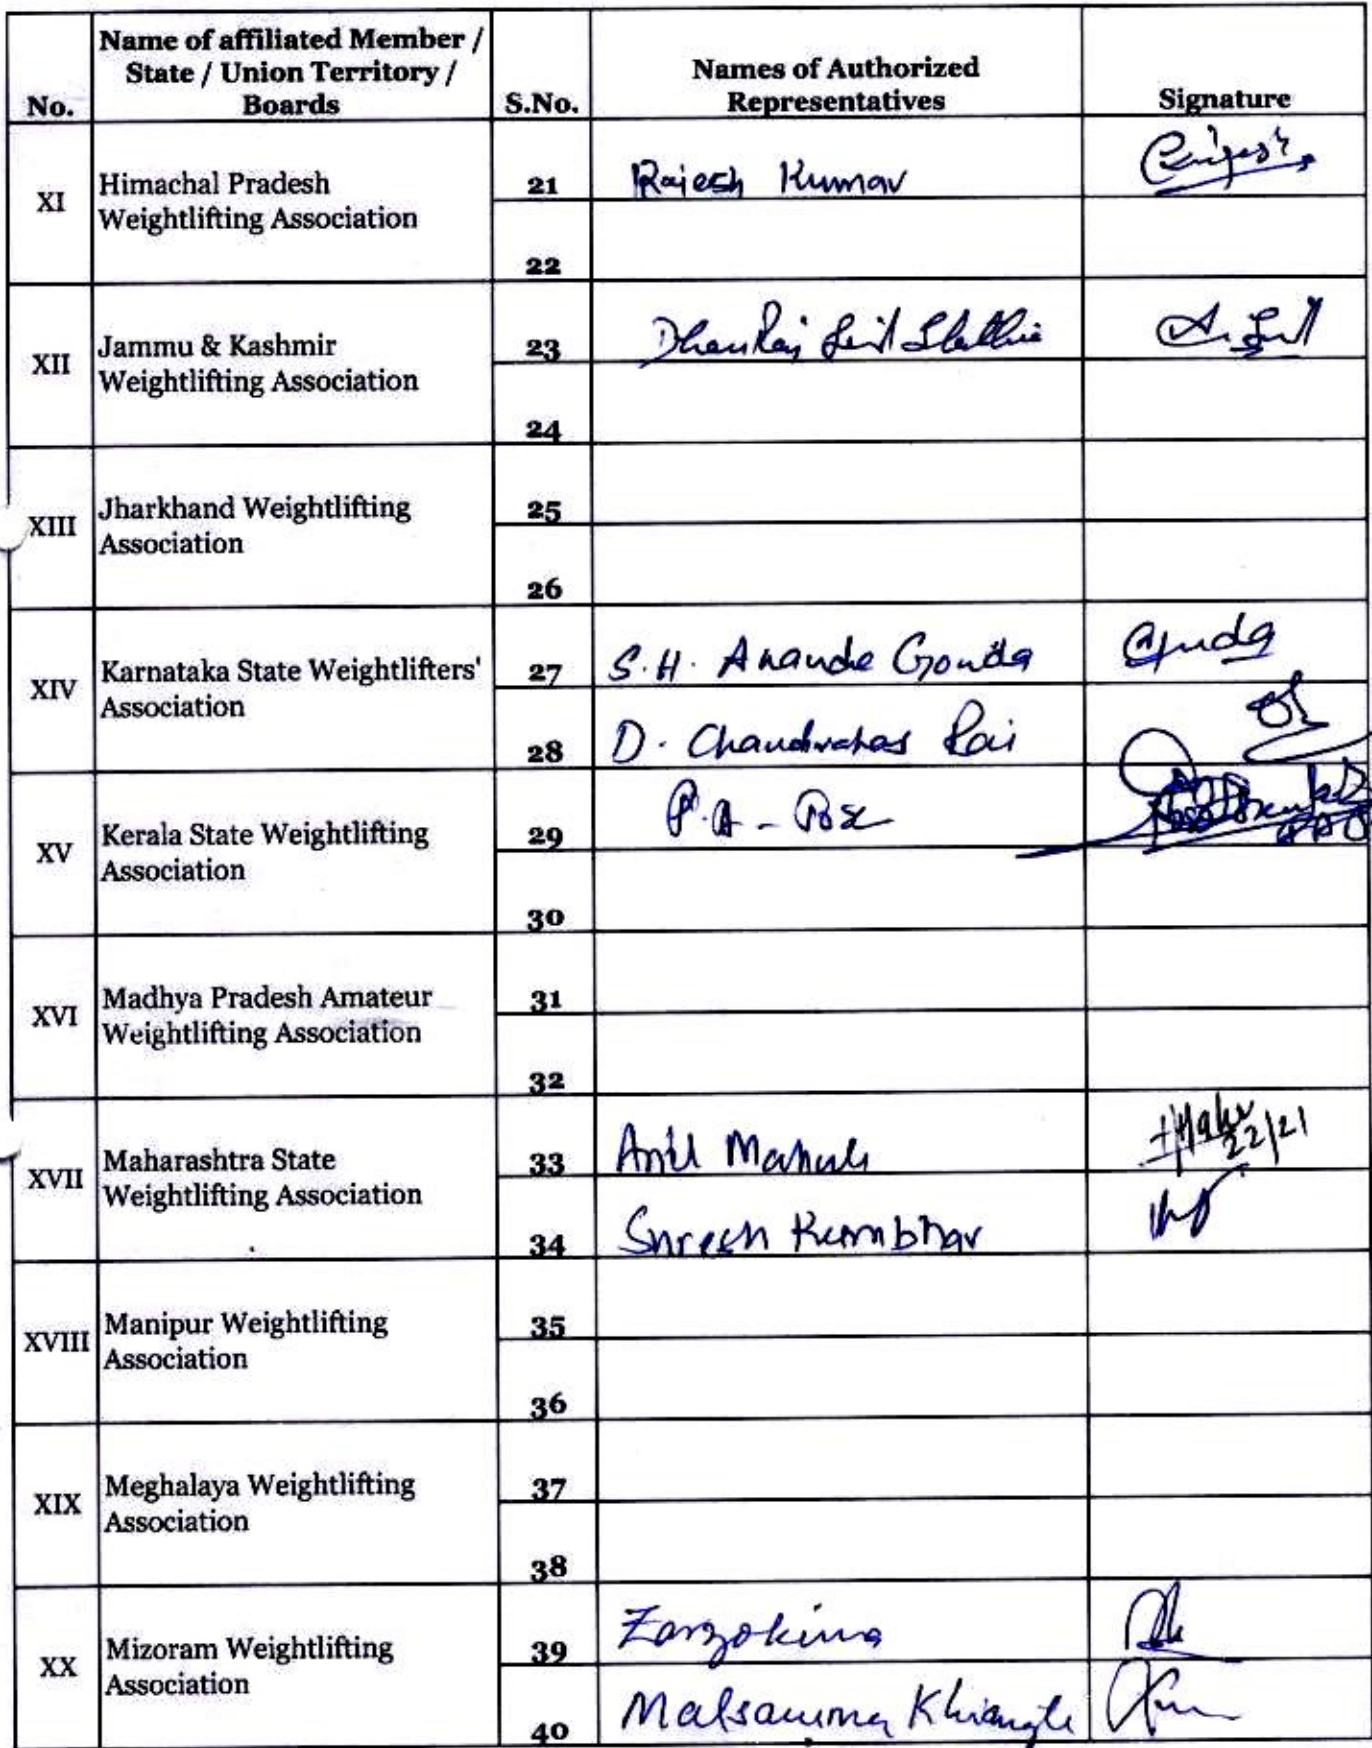 No. Name of affiliated Member / State / Union Territory / Boards S.No. Names of Authorized Representatives Signature
XI Himachal Pradesh
Weightlifting Association
21 Rajesh Kumar
22
XII Jammu & Kashmir
Weightlifting Association
23
24
XIII Jharkhand Weightlifting
Association
25
26
XIV Karnataka State Weightlifters'
Association
27 S.H. Anande Gouda
28 D. Chandrahas Rai
XV Kerala State Weightlifting
Association
29 P.A - Bose
30
XVI Madhya Pradesh Amateur
Weightlifting Association
31
32
XVII Maharashtra State
Weightlifting Association
33 Anil Mahuli
34 Suresh Kumbhar
XVIII Manipur Weightlifting
Association
35
36
XIX Meghalaya Weightlifting
Association
37
38
XX Mizoram Weightlifting
Association
39 Zarzokima
40 Malsawma Khiangte